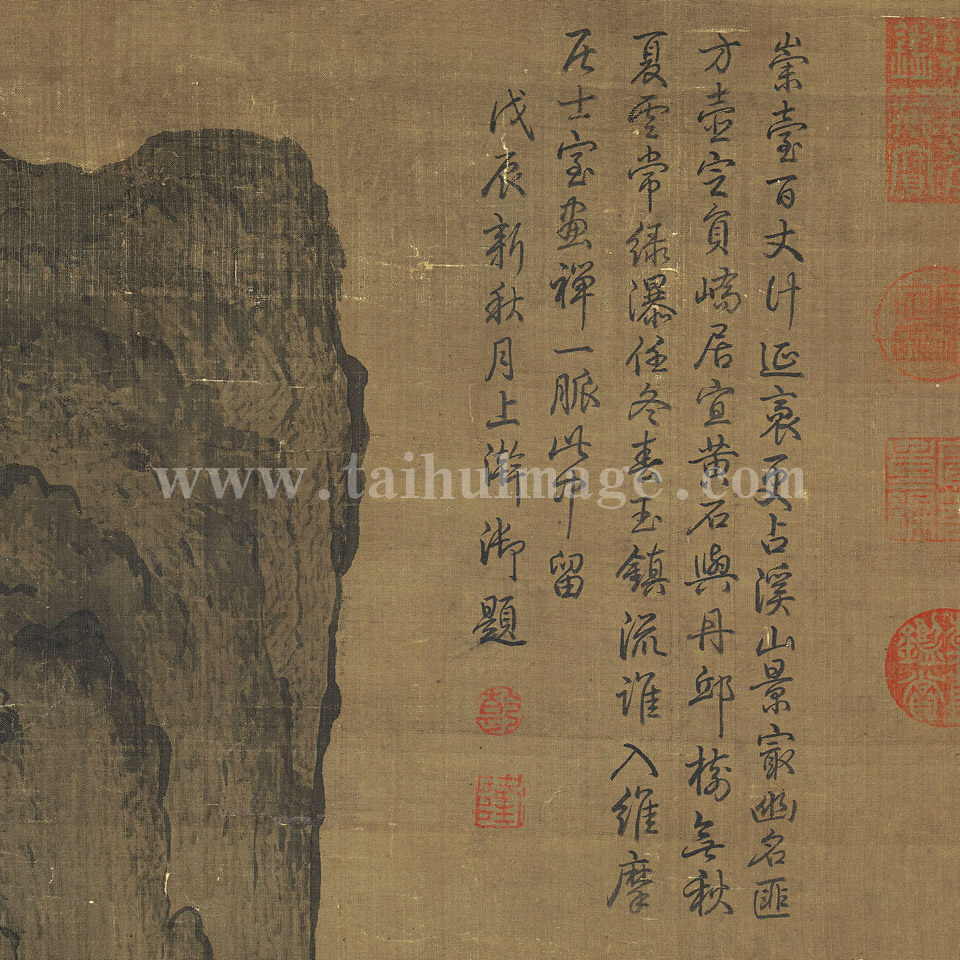 崇臺百丈計延袤更占溪山景冣幽名匪
方壺定員嶠居宣黄石與丹邱樹無秋
夏雲常緑瀑任冬春玉鎮流誰入維摩
居士室畫禪一脈此中留
戊辰新秋月上澣御題
乾
隆
www.taihuimage.com